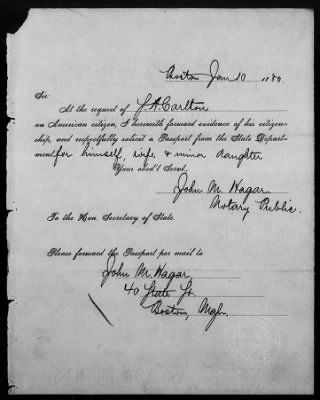 Boston Jan 10 1880.
Sir:
At the request of J. A. Carlton
an American citizen, I herewith forward evidence of his citizen-
ship, and respectfully solicit a Passport from the State Depart-
ment for himself, wife & minor daughter
Your obed't Servt,
John M. Hagar
Notary Public.
To the Hon. Secretary of State.
Please forward the Passport per mail to
John M. Hagar
40 State St.
Boston,